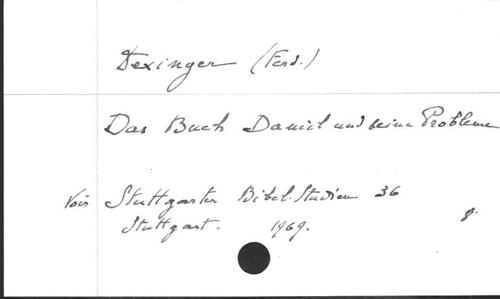 Dexinger (Ferd.)
Das Buch Daniel und seine Probleme
Voir Stuttgarter Bibel-Studien 36
Stuttgart. 1969. 8°